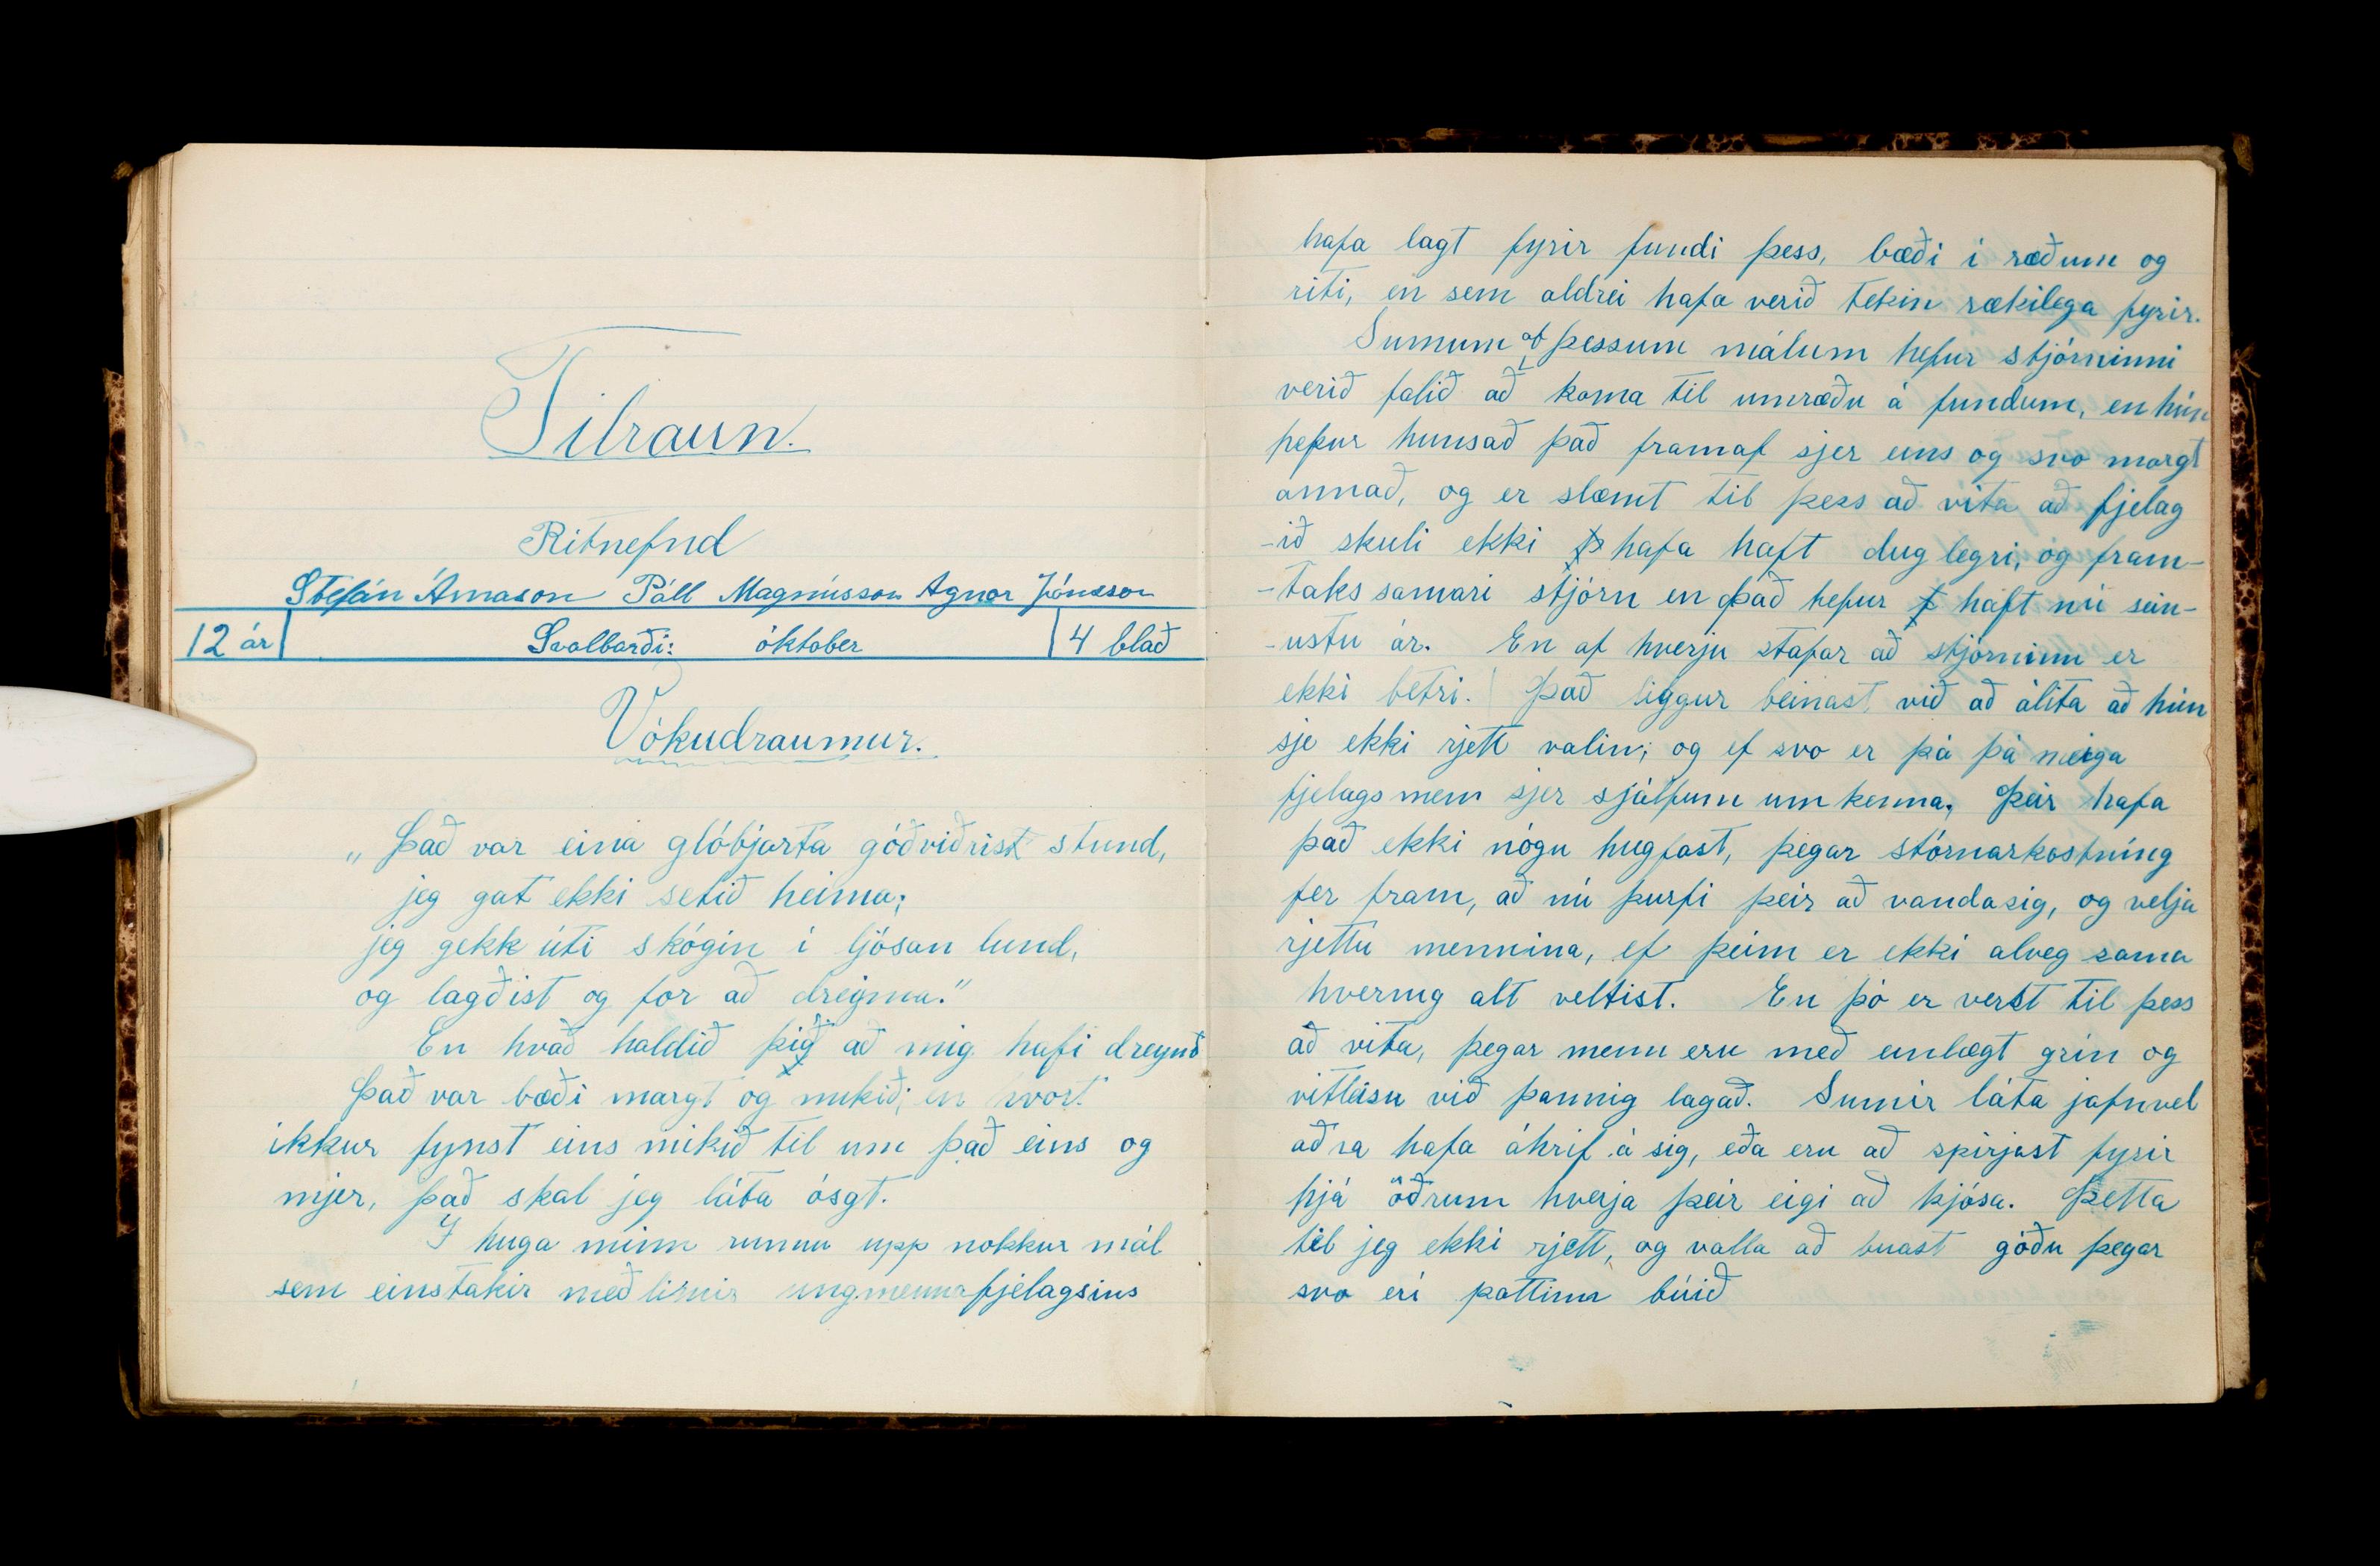 Tilraun.
Ritnefnd
Stefán Árnason Páll Magnússon Agnar Jónsson
12 ár Svalbarði: óktober 4 blað
Vökudraumur.
„Það var eina glóbjarta góðviðrist stund,
jeg gat ekki setið heima;
jeg gekk úti skógin í ljósan lund,
og lagðist og for að dreyma."
En hvað haldið þið að mig hafi dreymt
Það var bæði margt og mikið; en hvort
ikkur fynst eins mikið til um það eins og
mjer, það skal jeg láta ósgt.
Í huga minn runnu upp nokkur mál
sem einstakir meðlimir ungmennafjelagsins
hafa lagt fyrir fundi þess, bæði í ræðum og
riti, en sem aldrei hafa verið tekin rækilega fyrir.
Sumum af þessum málum hefur stjórninni
verið falið að koma til umræðu á fundum, en hún
hefur hunsað það framaf sjer eins og svo margt
annað, og er slæmt til þess að vita að fjelag
-ið skuli ekki hafa haft duglegri, og fram-
-taks samari stjórn en það hefur haft nú sein-
-ustu ár. En af hverju stafar að stjórninn er
ekki betri. Það liggur beinast við að álíta að hún
sje ekki rjett valin; og ef svo er þá þá meiga
fjelagsmenn sjer sjálfum um kenna, Þeir hafa
það ekki nógu hugfast, þegar stórnarkostníng
fer fram, að nú þurfi þeir að vanda sig, og velja
rjettu mennina, ef þeim er ekki alveg sama
hvernig alt veltist. En þó er verst til þess
að vita, þegar menn eru með einlægt grín og
vitleisu við þannig lagað. Sumir láta jafnvel
aðra hafa áhrif á sig, eða eru að spirjast fyrir
hjá öðrum hverja þeir eigi að kjósa. Þetta
tel jeg ekki rjett, og valla að buast góðu þegar
svo erí pottinn búið